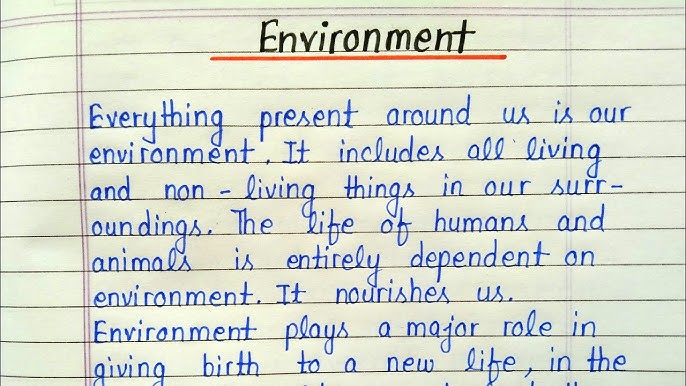 Environment
Everything present around us is our
environment. It includes all living
and non-living things in our surr-
oundings. The life of humans and
animals is entirely dependent on
environment. It nourishes us.
Environment plays a major role in
giving birth to a new life, in the